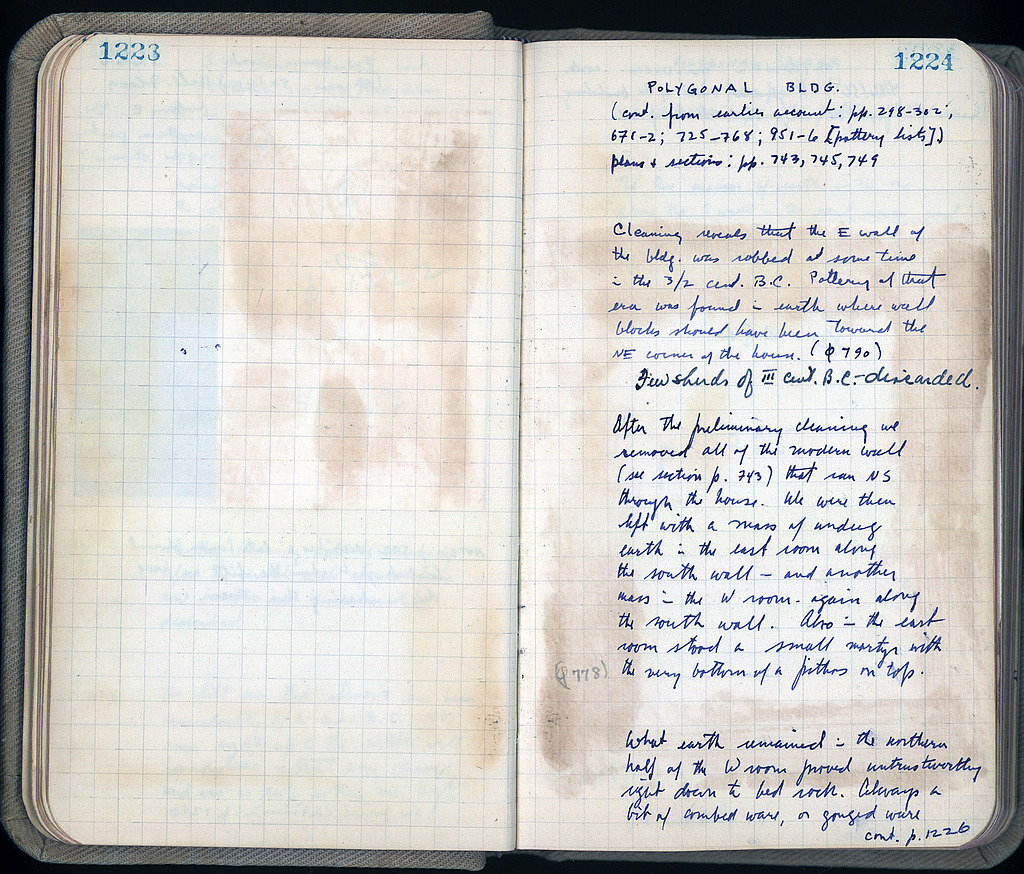 1223
1224
POLYGONAL BLDG.
(cont. from earlier account: pp. 298-302;
671-2; 725-768; 951-6 [pottery lists])
plans + sections: pp. 743, 745, 749
Cleaning reveals that the E wall of
the bldg. was robbed at some time
in the 3/2 cent. B.C. Pottery of that
era was found in earth where wall
blocks should have been toward the
NE corner of the house. (ϕ 790)
Few sherds of III cent. B.C. - discarded.
After the preliminary cleaning we
removed all of the modern wall
(see section p. 743) that ran NS
through the house. We were then
left with a mass of undug
earth in the east room along
the south wall - and another
mass in the W room - again along
the south wall. Also in the east
room stood a small martyr with
the very bottom of a pithos on top.
(ϕ 778)
What earth remained in the northern
half of the W room proved untrustworthy
right down to bed rock. Always a
bit of combed ware, or gouged ware
cont. p. 1226